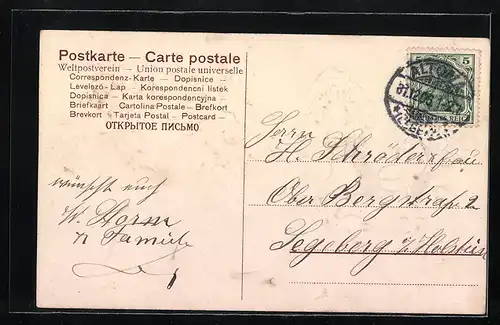 Postkarte — Carte postale
Weltpostverein — Union postale universelle
Correspondenz-Karte — Dopisnice
Levelező-Lap — Korespondencni listek
Dopisnica — Karta korespondencyjna —
Briefkaart — Cartolina Postale — Brefkort
Brevkort — Tarjeta Postal — Postcard —
ОТКРЫТОЕ ПИСЬМО
5
ALTONA
Herrn
H. Schröder u. Frau
Ober Bergstraße 2
Segeberg i/Holstein
wünscht euch
W. Storm
n Familie